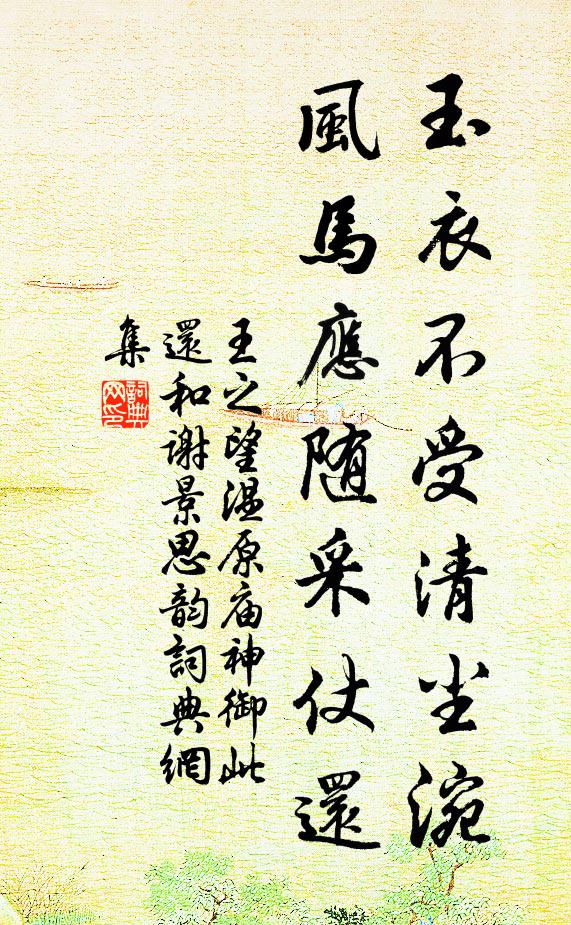 玉衣不受清尘涴
風馬應随采仗還
王之望温原庙神御此
還和谢景思韵詞典網
集
詞典网印